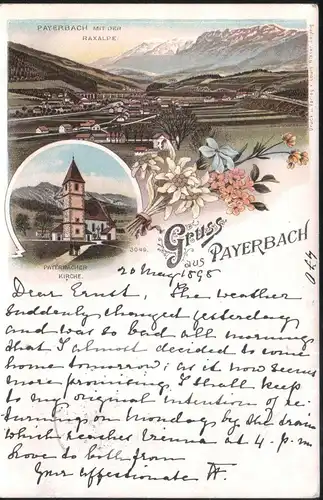 PAYERBACH MIT DER
RAXALPE.
3048.
PAYERBACHER
KIRCHE.
Gruss
aus PAYERBACH
20 May 1898
Dear Ernst, The weather
suddenly changed yesterday
and was so bad all morning
that I almost decided to come
home tomorrow; as it now seems
more promising I shall keep
to my original intention of re-
turning on Monday by the train
which reaches Vienna at 4. p.m
Love to both from
Your affectionate